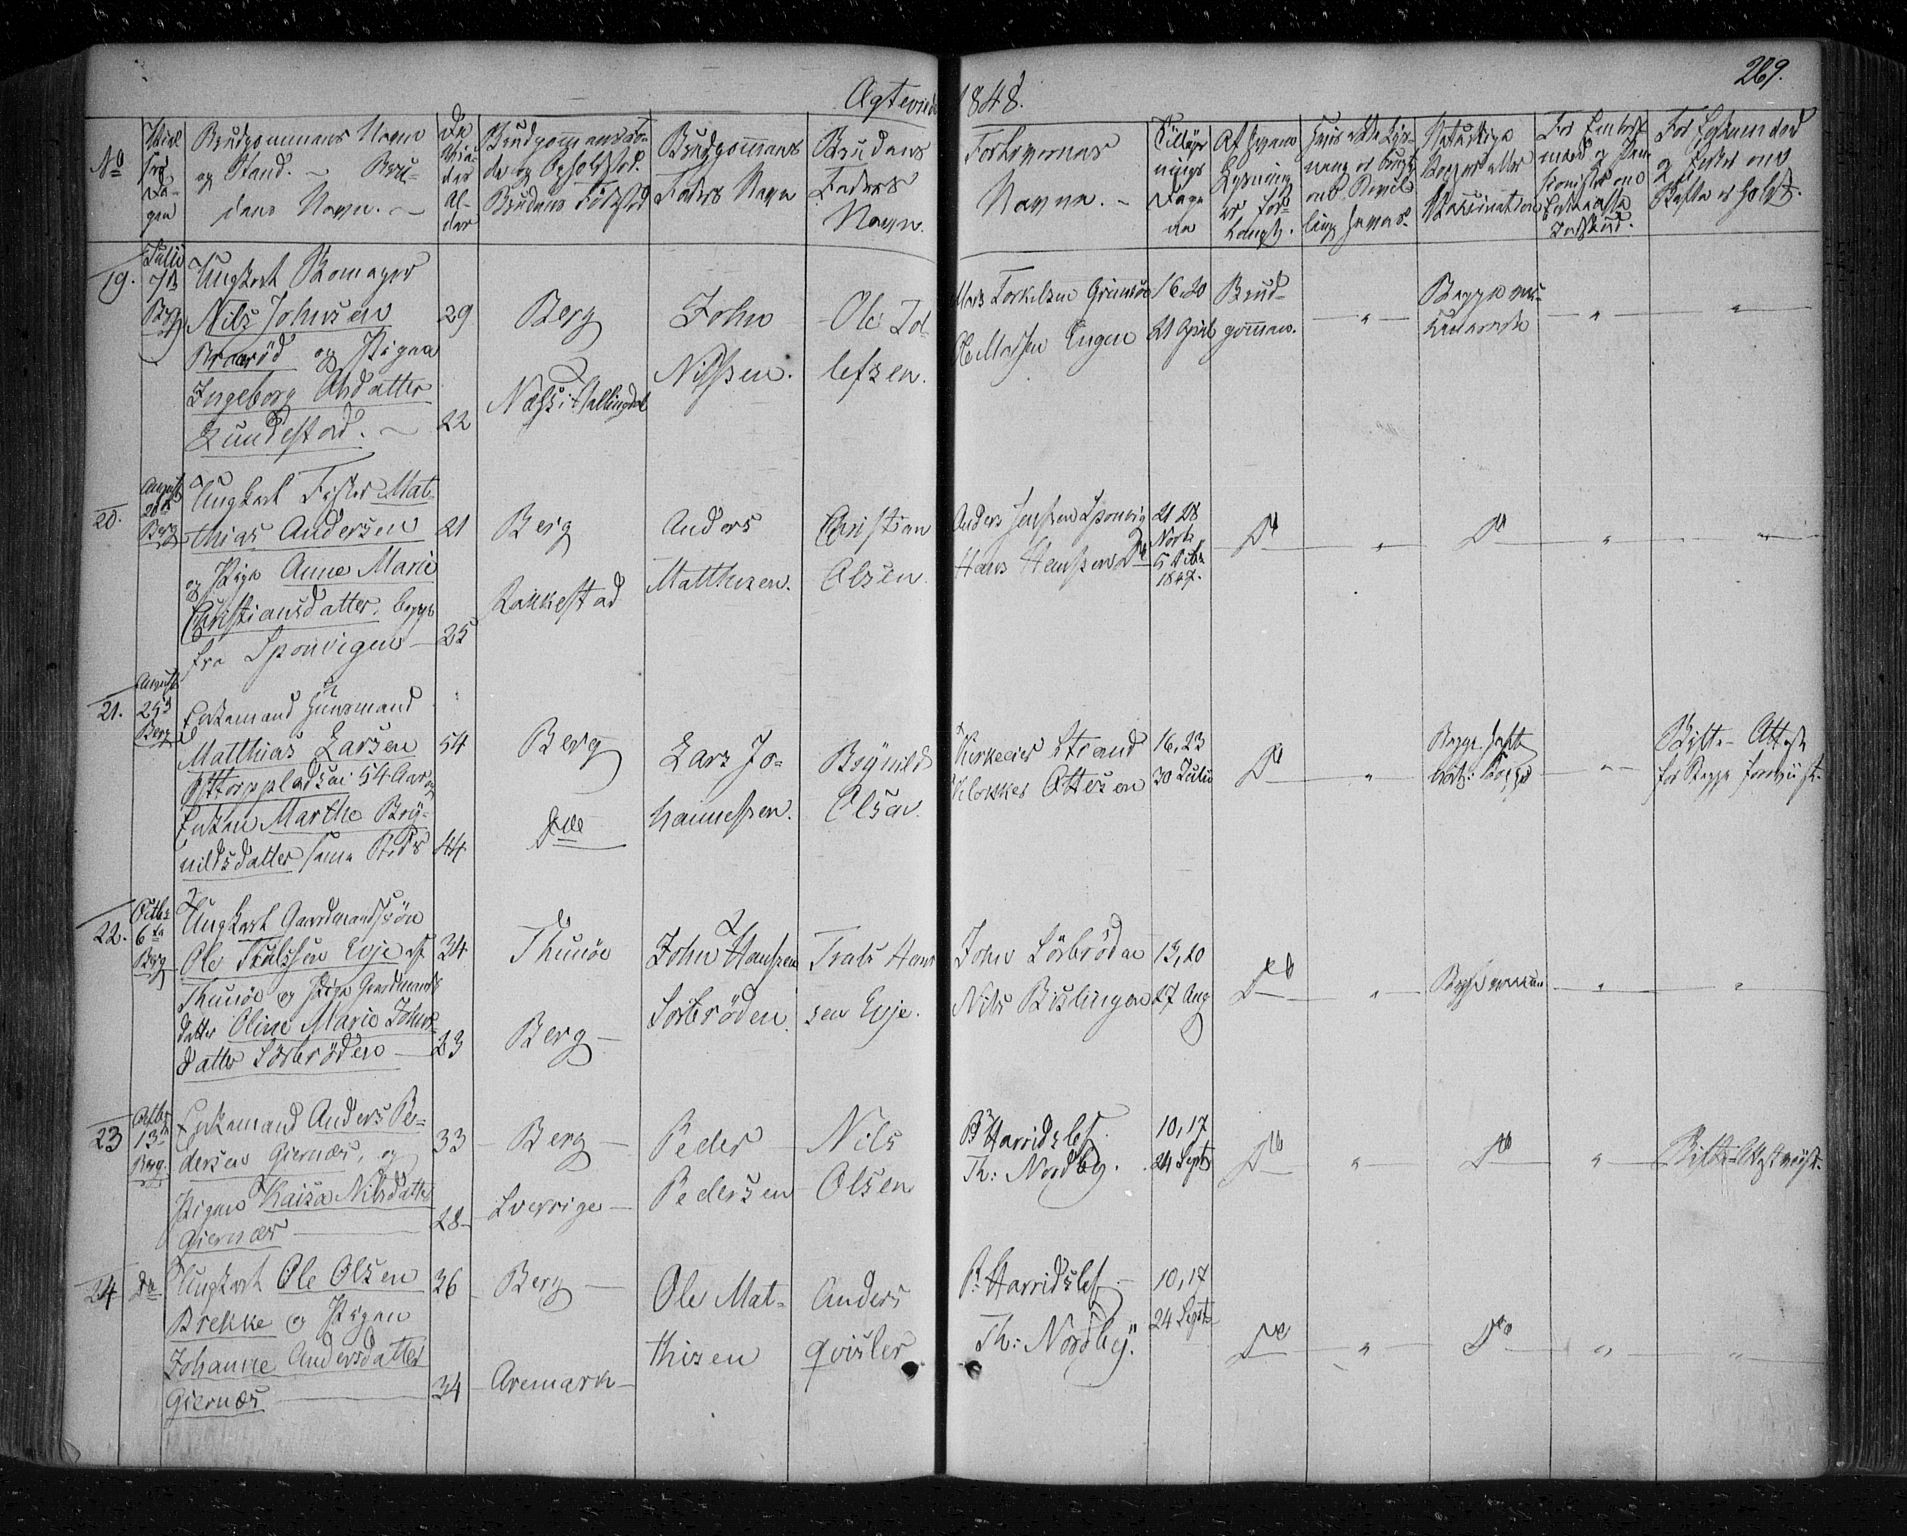 Ægteviede 1848.
269.
No
Viel
ses
Da-
gen
Brudgommens Navn
og Stand. — Bru-
dens Navn. —
De
Vie-
des
Al-
der
Brudgommens Fø-
de og Opholdsted.
Brudens Födsted
Brudgommens
Faders Navn
Brudens
Faders
Navn.
Forlovernes
Navne. —
Tillys-
nings
Dage
ne
Af hvem
Lysning
er for-
langt.
Naturlige
Kopper eller
Vaccination
For Enkemænd
og Enker om
Skifte er holdt.
19.
Julii
Berg
Ungkarl Skomager
Nils Johnsen
og Pigen
Ingeborg Olsdatter
Lundestad. —
29
22
Berg
Næss i Hallingdal
John
Nilssen.
Ole Tol-
lefsen.
Mads Torkelsen
Ole Madsen Engen
16 20
21 April
Brud-
gommen.
"
Begge vac-
cinerede
"
"
20.
August
Berg
Ungkarl Fisker Mat-
thias Andersen
og Pige Anne Marie
Christiansdatter, begge
fra Sponvigen —
21
25
Berg
Rakkestad
Anders
Matthisen.
Christian
Olsen.
Anders Jenssen Sponvig
Hans Hanssen Do
21 28
Novbr
5 Decbr
1847.
Do
"
Do
"
"
21.
August
25d
Berg
Enkemand Huusmand
Matthias Larsen
54 Aar og
Enken Marthe Bry-
nildsdatter samme Steds
54
44
Berg
Do
Lars Jo-
hannessen.
Brynild
Olsen.
Kirkeeier Strand
Klokker Ottesen
16, 23
30 Julii
Do
"
Begge havt
naturl: Kopper
"
Skifte-Attest
for Begge foreviist.
22.
Octbr
6te
Berg
Ungkarl Gaardmandssön
Ole Truls­sen Evje af
Thunöe og Pige Gaardmands
datter Oline Marie Johns-
datter Sörbröden —
34
23
Thunöe
Berg —
John Hanssen
Sörbröden.
Truls Hans
sen Evje.
John Sörbröden
Nils Bislingen
13, 20
27 Aug
Do
"
Begge vaccin
"
"
23
Octbr
13de
Berg.
Enkemand Anders Pe-
dersen Giernæs, og
Pigen Kaisa Nilsdatter
Giernæs —
33
28
Berg —
Sverrige —
Peder
Pedersen
Nils
Olsen
P. Harridslef.
Th: Nordby.
10, 17
24 Septr
Do
"
Do
"
Skifte-Attest
24
Do
Ungkarl Ole Olsen
Brekke og Pigen
Johanne Andersdatter
Giernæs —
36
34
Berg —
Aremark —
Ole Mat-
thisen
Anders
Qvisler
P. Harridslef. —
Th: Nordby.
10, 17
24 Septr
Do
"
Do
"
"